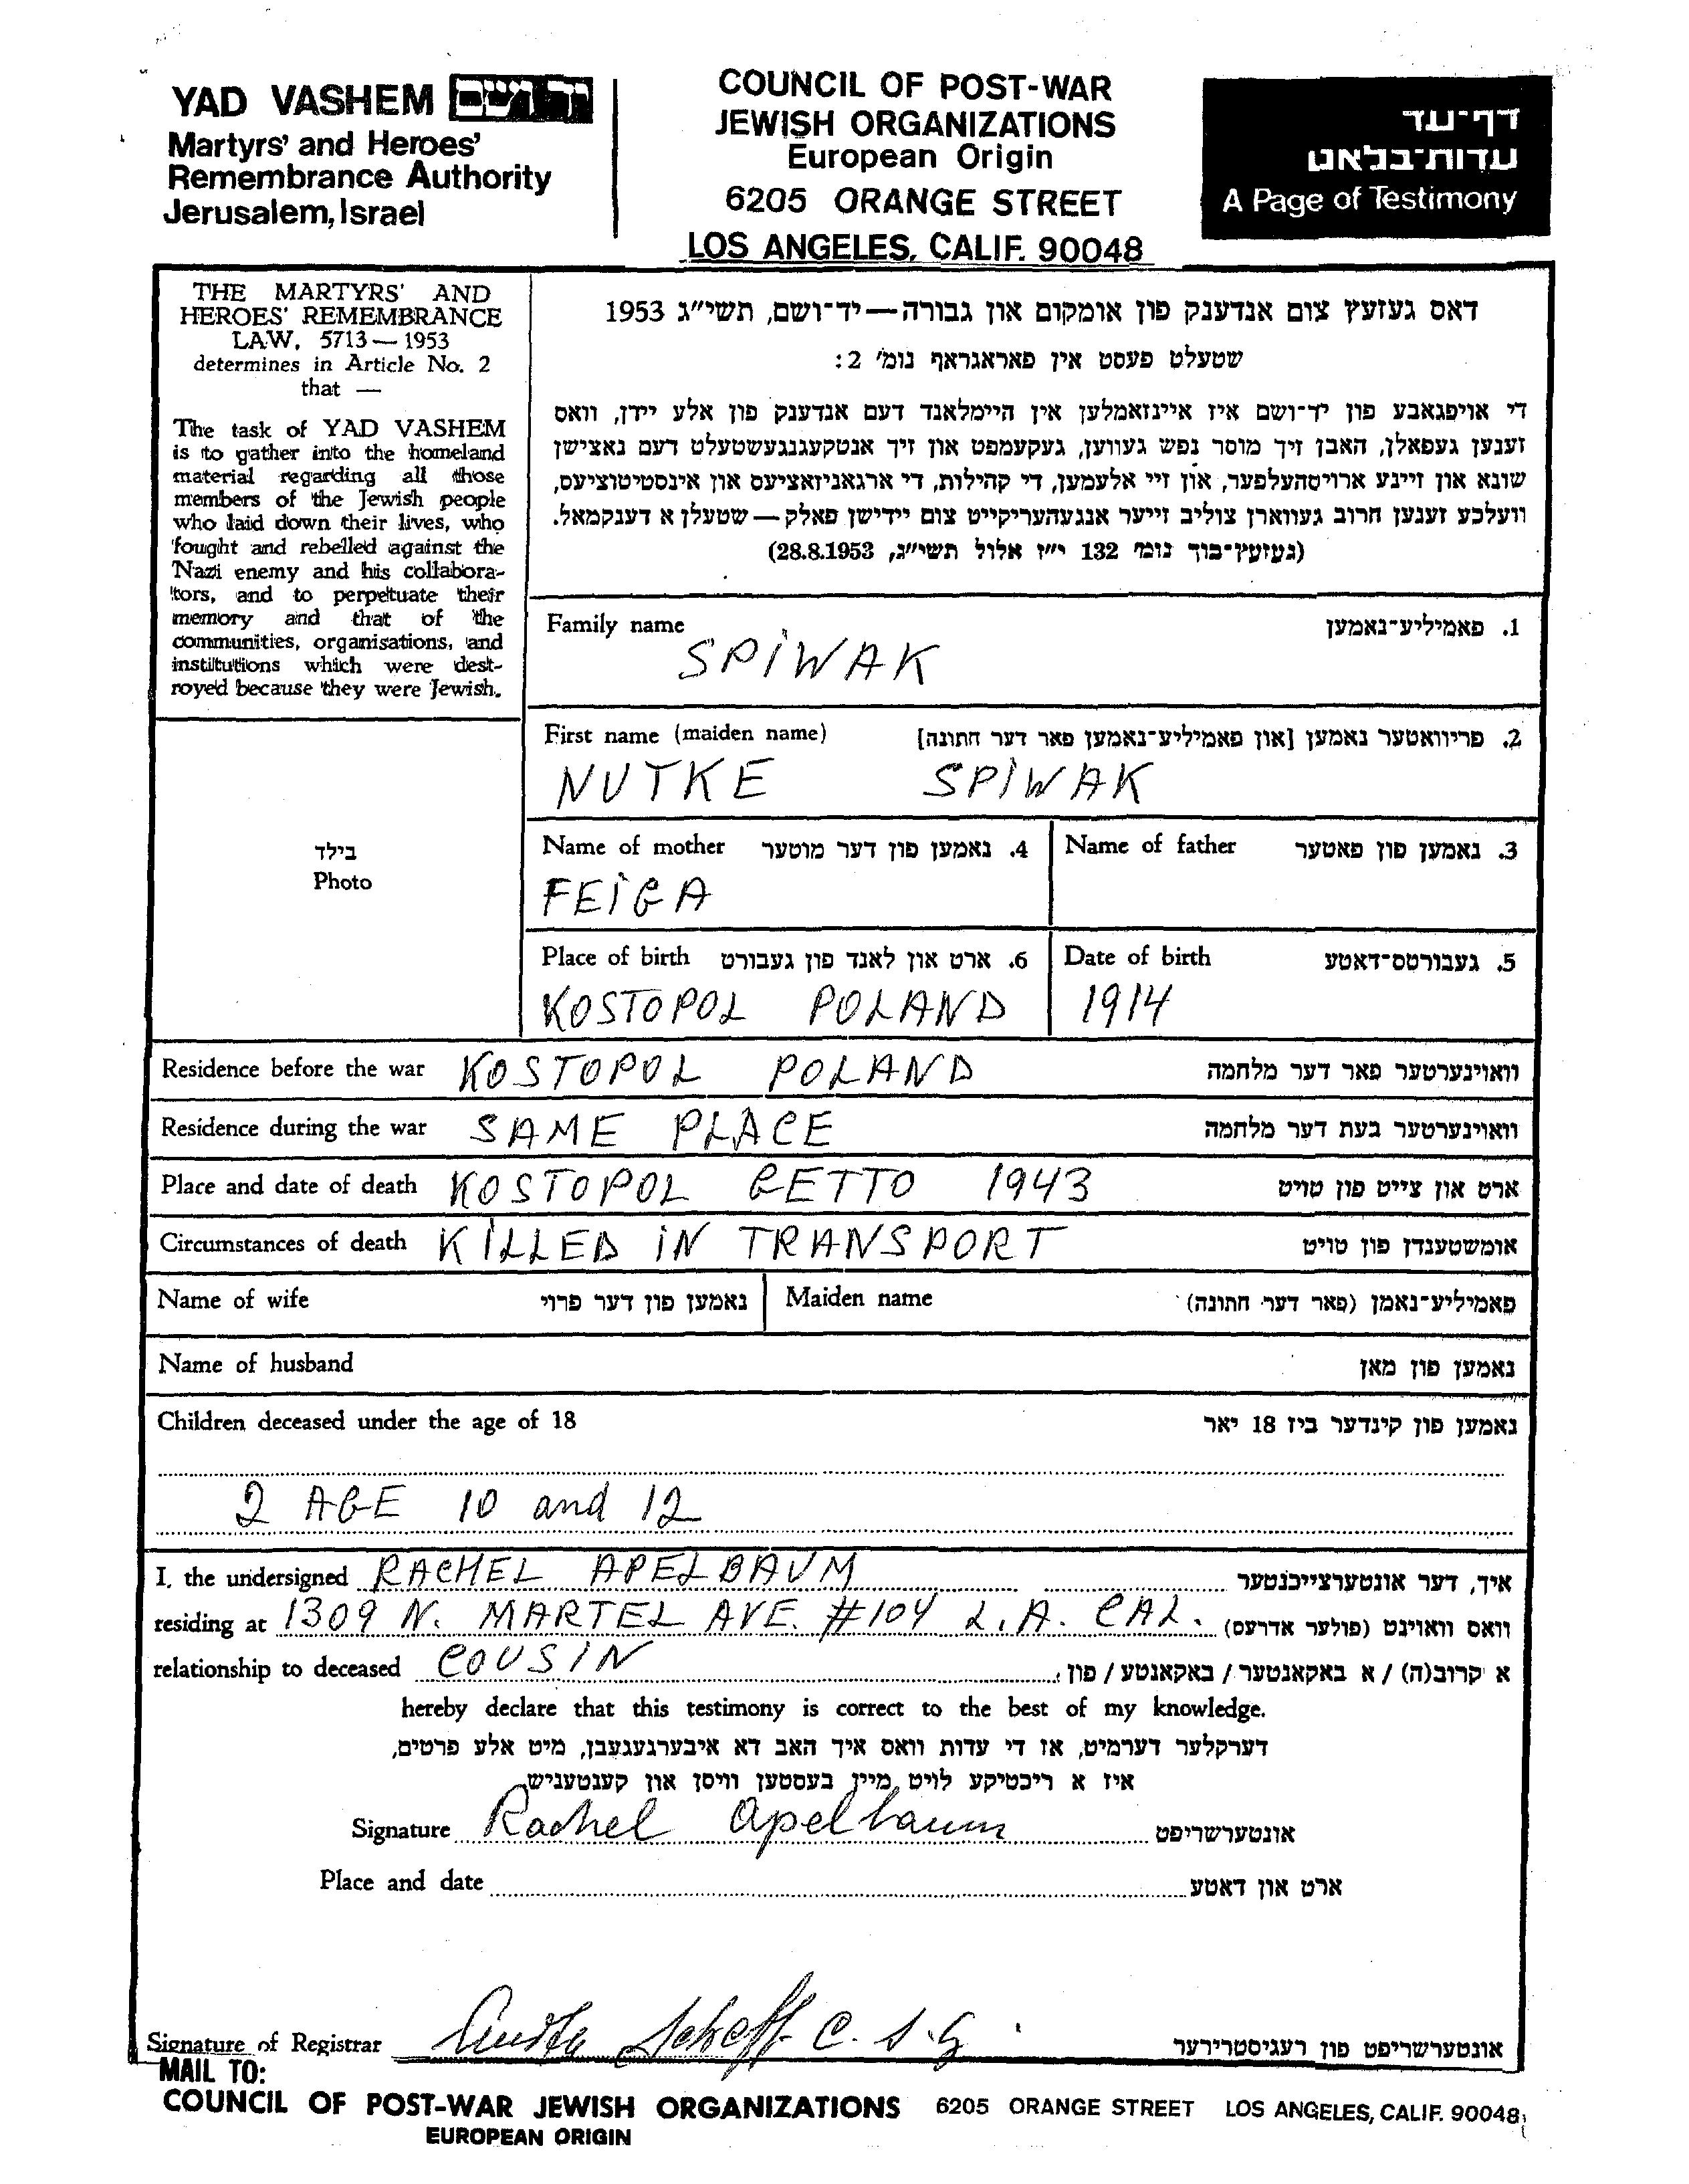 YAD VASHEM יד ושם
Martyrs' and Heroes'
Remembrance Authority
Jerusalem, Israel
COUNCIL OF POST-WAR
JEWISH ORGANIZATIONS
European Origin
6205 ORANGE STREET
LOS ANGELES, CALIF. 90048
דף-עד
עדות-בלאט
A Page of Testimony
THE MARTYRS' AND
HEROES' REMEMBRANCE
LAW, 5713—1953
determines in Article No. 2
that —
The task of YAD VASHEM
is to gather into the homeland
material regarding all those
members of the Jewish people
who laid down their lives, who
fought and rebelled against the
Nazi enemy and his collabora-
tors, and to perpetuate their
memory and that of the
communities, organisations, and
institutions which were dest-
royed because they were Jewish.
דאס געזעץ צום אנדענק פון אומקום און גבורה—יד-ושם, תשי״ג 1953
שטעלט פעסט אין פאראגראף נומ׳ 2:
די אויפגאבע פון יד-ושם איז איינזאמלען אין היימלאנד דעם אנדענק פון אלע יידן, וואס
זענען געפאלן, האבן זיך מוסר נפש געווען, געקעמפט און זיך אנטקעגנגעשטעלט דעם נאצישן
שונא און זיינע ארויסהעלפער, און זיי אלעמען, די קהילות, די ארגאניזאציעס און אינסטיטוציעס,
וועלכע זענען חרוב געווארן צוליב זייער אנגעהעריקייט צום יידישן פאלק—שטעלן א דענקמאל.
(געזעץ-בוך נומ׳ 132 י״ז אלול תשי״ג, 28.8.1953)
Family name 1. פאמיליע-נאמען
SPIWAK
First name (maiden name) 2. פריוואטער נאמען [און פאמיליע-נאמען פאר דער חתונה]
NUTKE SPIWAK
Name of mother 4. נאמען פון דער מוטער Name of father 3. נאמען פון פאטער
FEIGA
Place of birth 6. ארט און לאנד פון געבורט Date of birth 5. געבורטס-דאטע
KOSTOPOL POLAND 1914
בילד
Photo
Residence before the war KOSTOPOL POLAND וואוינערטער פאר דער מלחמה
Residence during the war SAME PLACE וואוינערטער בעת דער מלחמה
Place and date of death KOSTOPOL GETTO 1943 ארט און צייט פון טויט
Circumstances of death KILLED IN TRANSPORT אומשטענדן פון טויט
Name of wife נאמען פון דער פרוי Maiden name פאמיליע-נאמן (פאר דער חתונה)
Name of husband נאמען פון מאן
Children deceased under the age of 18 נאמען פון קינדער ביז 18 יאר
2 AGE 10 and 12
I, the undersigned RACHEL APELBAUM איך, דער אונטערצייכנטער
residing at 1309 N. MARTEL AVE. #104 L.A. CAL. וואס וואוינט (פולער אדרעס)
relationship to deceased COUSIN א קרוב(ה) / א באקאנטער / באקאנטע / פון
hereby declare that this testimony is correct to the best of my knowledge.
דערקלער דערמיט, אז די עדות וואס איך האב דא איבערגעגעבן, מיט אלע פרטים,
איז א ריכטיקע לויט מיין בעסטען וויסן און קענטעניש.
Signature Rachel Apelbaum אונטערשריפט
Place and date ארט און דאטע
Signature of Registrar אונטערשריפט פון רעגיסטרירער
MAIL TO:
COUNCIL OF POST-WAR JEWISH ORGANIZATIONS 6205 ORANGE STREET LOS ANGELES, CALIF. 90048
EUROPEAN ORIGIN